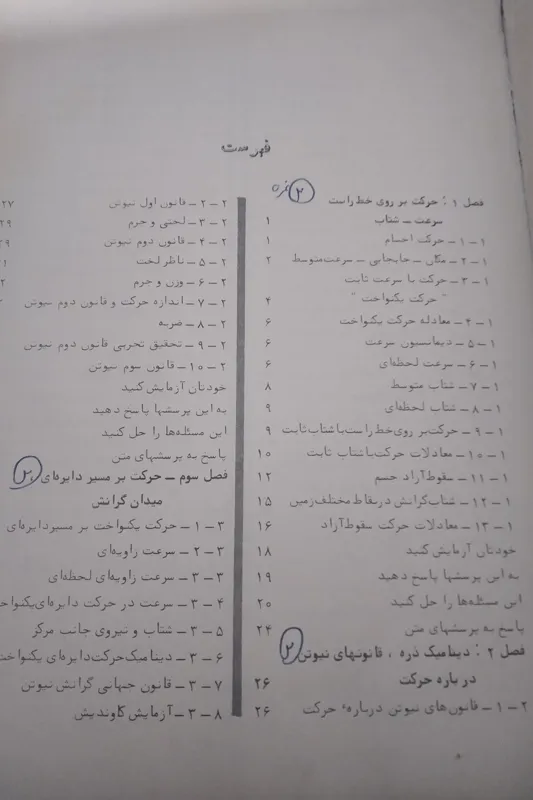 فهرست
فصل ۱ : حرکت بر روی خط راست ۲ نمره
سرعت ـ شتاب ۱
۱ ـ ۱ ـ حرکت اجسام ۱
۱ ـ ۲ ـ مکان ـ جابجایی ـ سرعت متوسط ۲
۱ ـ ۳ ـ حرکت با سرعت ثابت
" حرکت یکنواخت " ۴
۱ ـ ۴ ـ معادله حرکت یکنواخت ۶
۱ ـ ۵ ـ دیمانسیون سرعت ۶
۱ ـ ۶ ـ سرعت لحظه‌ای ۶
۱ ـ ۷ ـ شتاب متوسط ۸
۱ ـ ۸ ـ شتاب لحظه‌ای ۹
۱ ـ ۹ ـ حرکت بر روی خط راست با شتاب ثابت ۹
۱ ـ ۱۰ ـ معادلات حرکت با شتاب ثابت ۱۰
۱ ـ ۱۱ ـ سقوط آزاد جسم ۱۲
۱ ـ ۱۲ ـ شتاب گرانش در نقاط مختلف زمین ۱۵
۱ ـ ۱۳ ـ معادلات حرکت سقوط آزاد ۱۶
خودتان آزمایش کنید ۱۸
به این پرسشها پاسخ دهید ۱۹
این مسئله‌ها را حل کنید ۲۰
پاسخ به پرسشهای متن ۲۴
فصل ۲ : دینامیک ذره ، قانونهای نیوتن ۲
درباره حرکت ۲۶
۲ ـ ۱ ـ قانون‌های نیوتن دربارهٔ حرکت ۲۶
۲ ـ ۲ ـ قانون اول نیوتن ۲۷
۲ ـ ۳ ـ لختی و جرم ۲۹
۲ ـ ۴ ـ قانون دوم نیوتن ۲۹
۲ ـ ۵ ـ ناظر لخت
۲ ـ ۶ ـ وزن و جرم
۲ ـ ۷ ـ اندازه حرکت و قانون دوم نیوتن
۲ ـ ۸ ـ ضربه
۲ ـ ۹ ـ تحقیق تجربی قانون دوم نیوتن
۲ ـ ۱۰ ـ قانون سوم نیوتن
خودتان آزمایش کنید
به این پرسشها پاسخ دهید
این مسئله‌ها را حل کنید
پاسخ به پرسشهای متن
فصل سوم ـ حرکت بر مسیر دایره‌ای ۲
میدان گرانش
۳ ـ ۱ ـ حرکت یکنواخت بر مسیر دایره‌ای
۳ ـ ۲ ـ سرعت زاویه‌ای
۳ ـ ۳ ـ سرعت زاویه‌ای لحظه‌ای
۳ ـ ۴ ـ سرعت در حرکت دایره‌ای یکنواخت
۳ ـ ۵ ـ شتاب و نیروی جانب مرکز
۳ ـ ۶ ـ دینامیک حرکت دایره‌ای یکنواخت
۳ ـ ۷ ـ قانون جهانی گرانش نیوتن
۳ ـ ۸ ـ آزمایش کاوندیش